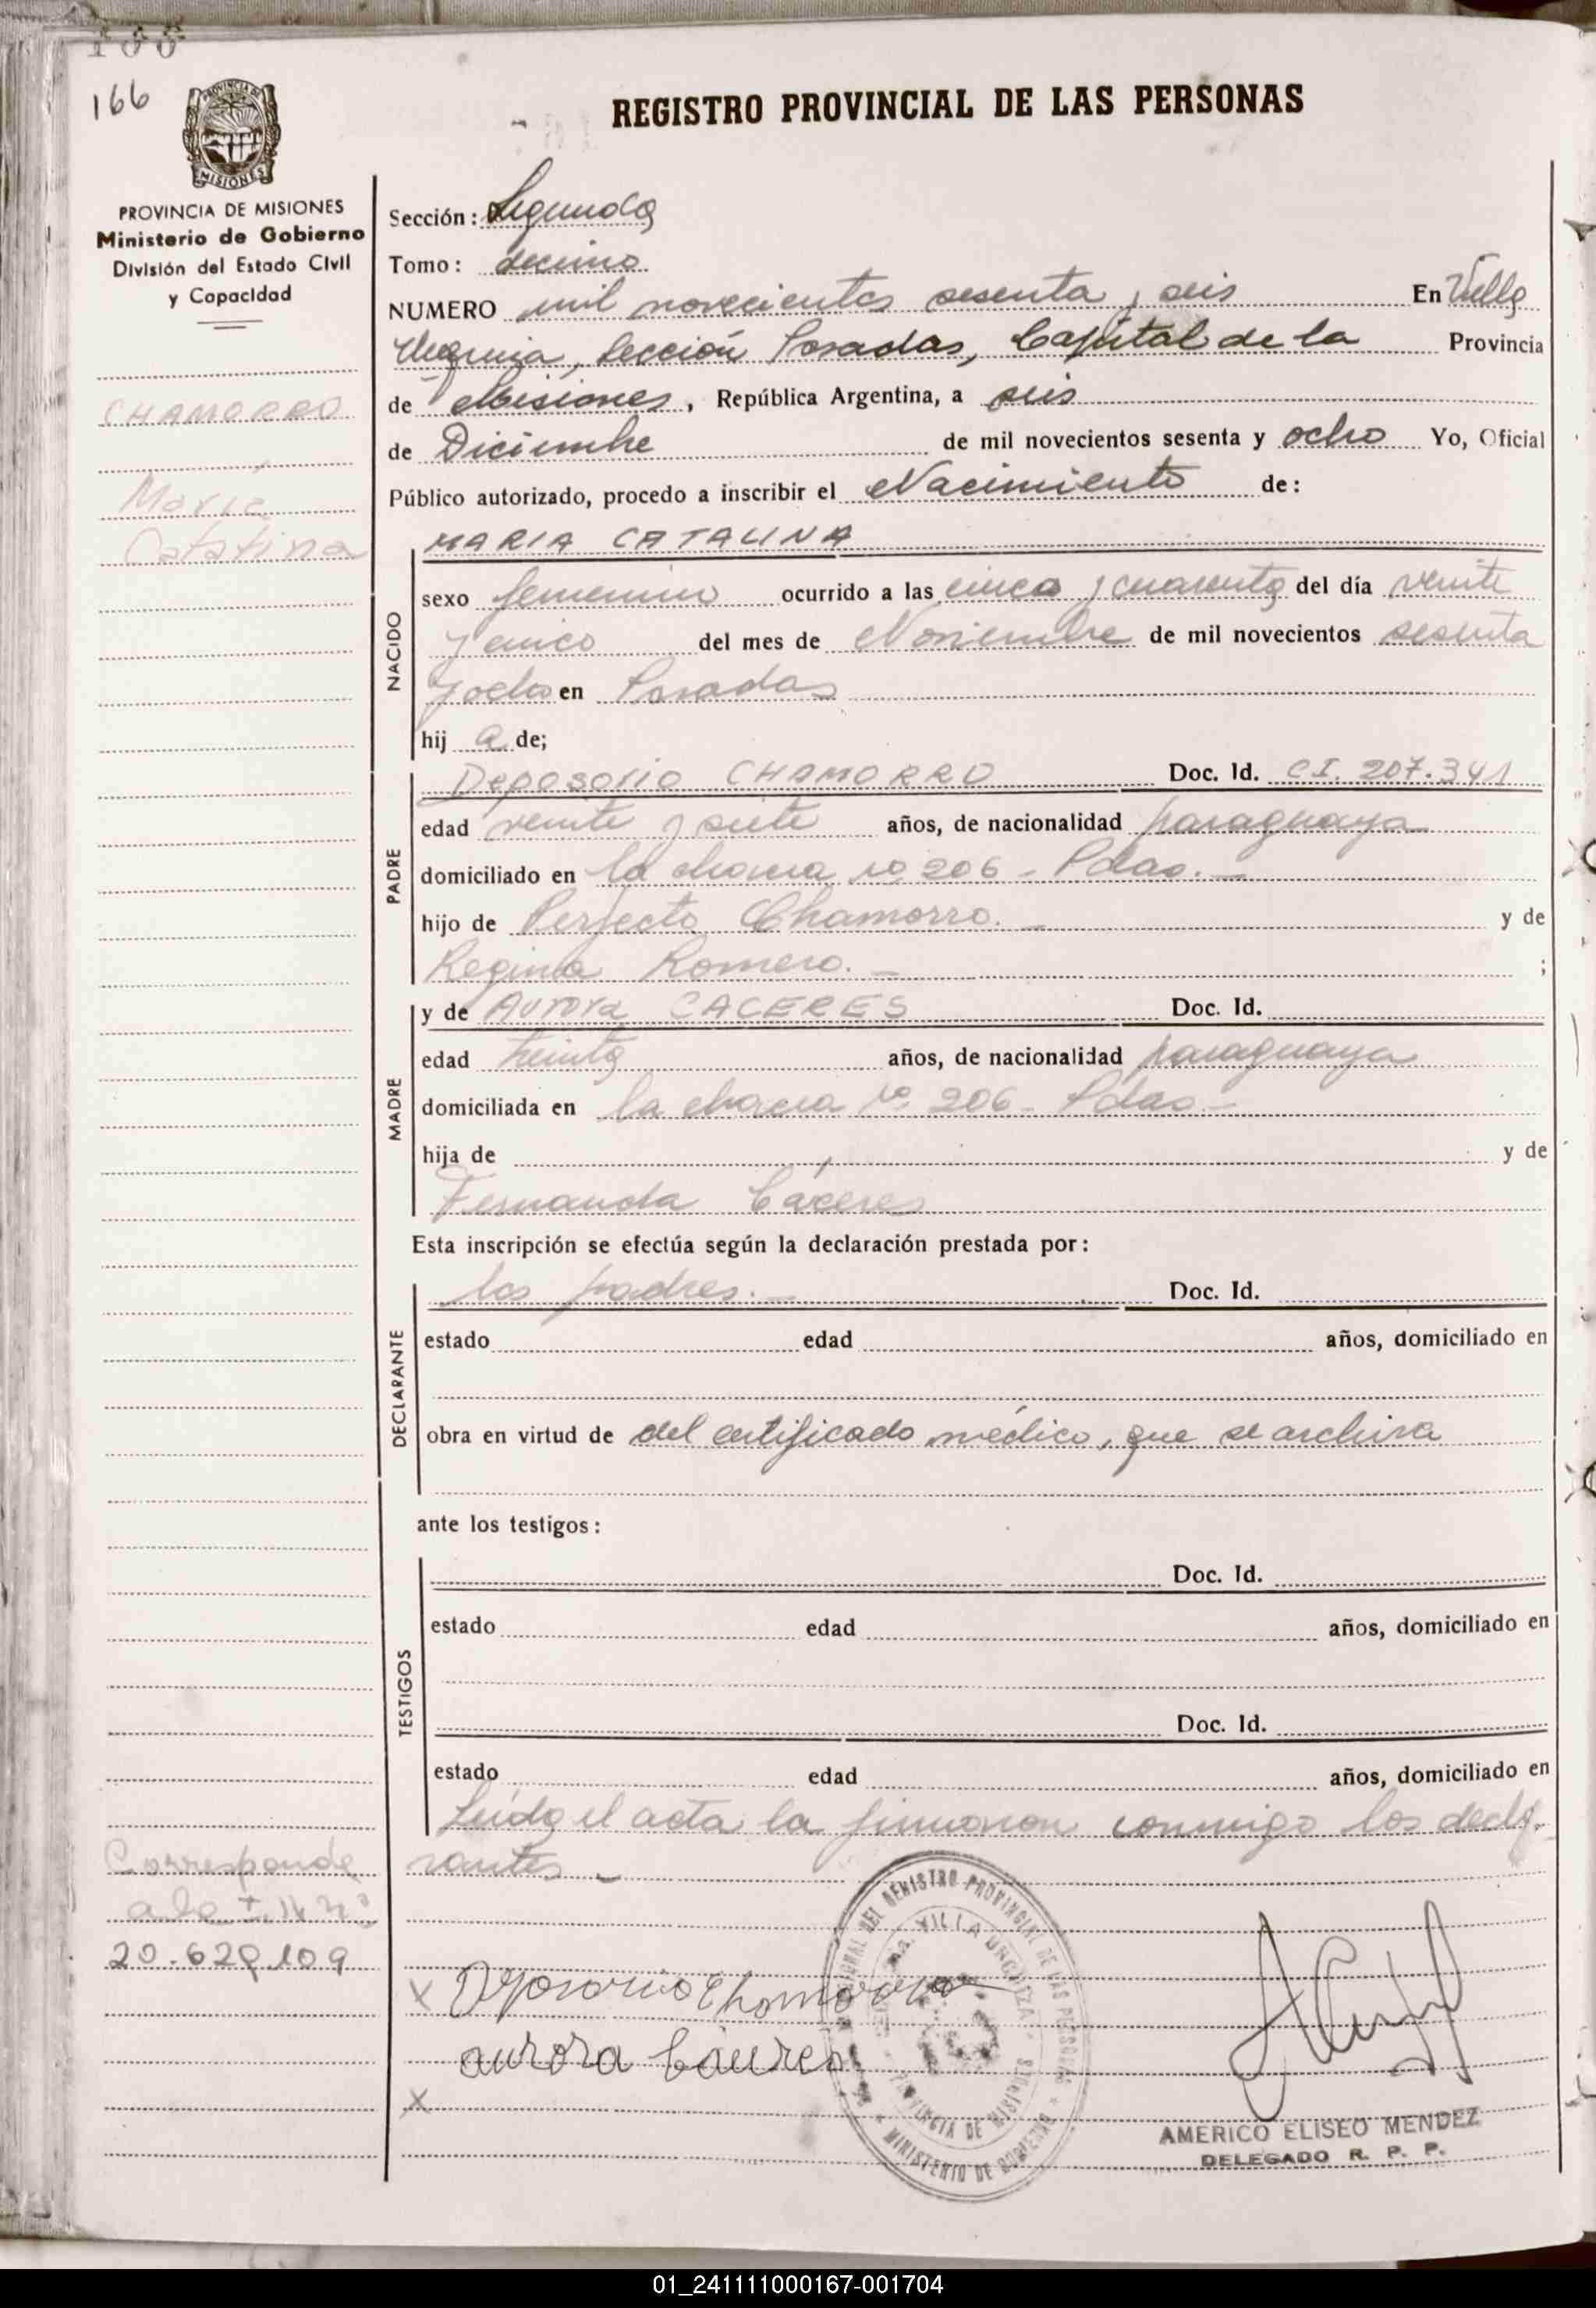 166
PROVINCIA DE MISIONES
Ministerio de Gobierno
División del Estado Civil
y Capacidad
REGISTRO PROVINCIAL DE LAS PERSONAS
Sección: Segunda
Tomo: decimo
NUMERO mil novecientos sesenta y seis En Villa
Urquiza, Sección Posadas, Capital de la Provincia
de Misiones, República Argentina, a seis
de Diciembre de mil novecientos sesenta y ocho Yo, Oficial
Público autorizado, procedo a inscribir el Nacimiento de:
CHAMORRO
María
Catalina
NACIDO
MARIA CATALINA
sexo femenino ocurrido a las cinco y cuarenta del día veinte
y cinco del mes de Noviembre de mil novecientos sesenta
y ocho en Posadas
hij a de;
PADRE
Deposorio CHAMORRO Doc. Id. CI. 207.341
edad veinte y siete años, de nacionalidad paraguaya
domiciliado en la chacra nº 206 - Pdas. -
hijo de Perfecto Chamorro. - y de
Regina Romero. - ;
MADRE
y de Aurora CACERES Doc. Id.
edad treinta años, de nacionalidad paraguaya
domiciliada en la chacra nº 206 - Pdas -
hija de y de
Fernanda Cáceres
Esta inscripción se efectúa según la declaración prestada por:
DECLARANTE
los padres. - Doc. Id.
estado edad años, domiciliado en
obra en virtud de del certificado médico, que se archiva
ante los testigos:
TESTIGOS
Doc. Id.
estado edad años, domiciliado en
Doc. Id.
estado edad años, domiciliado en
Leída el acta la firmaron conmigo los decla-
rantes -
Corresponde
a la
20.629.109
x Deposorio Chamorro
aurora Caceres
x
VILLA URQUIZA
PROVINCIA DE MISIONES
MINISTERIO DE GOBIERNO
AMERICO ELISEO MENDEZ
DELEGADO R. P. P.
01_241111000167-001704